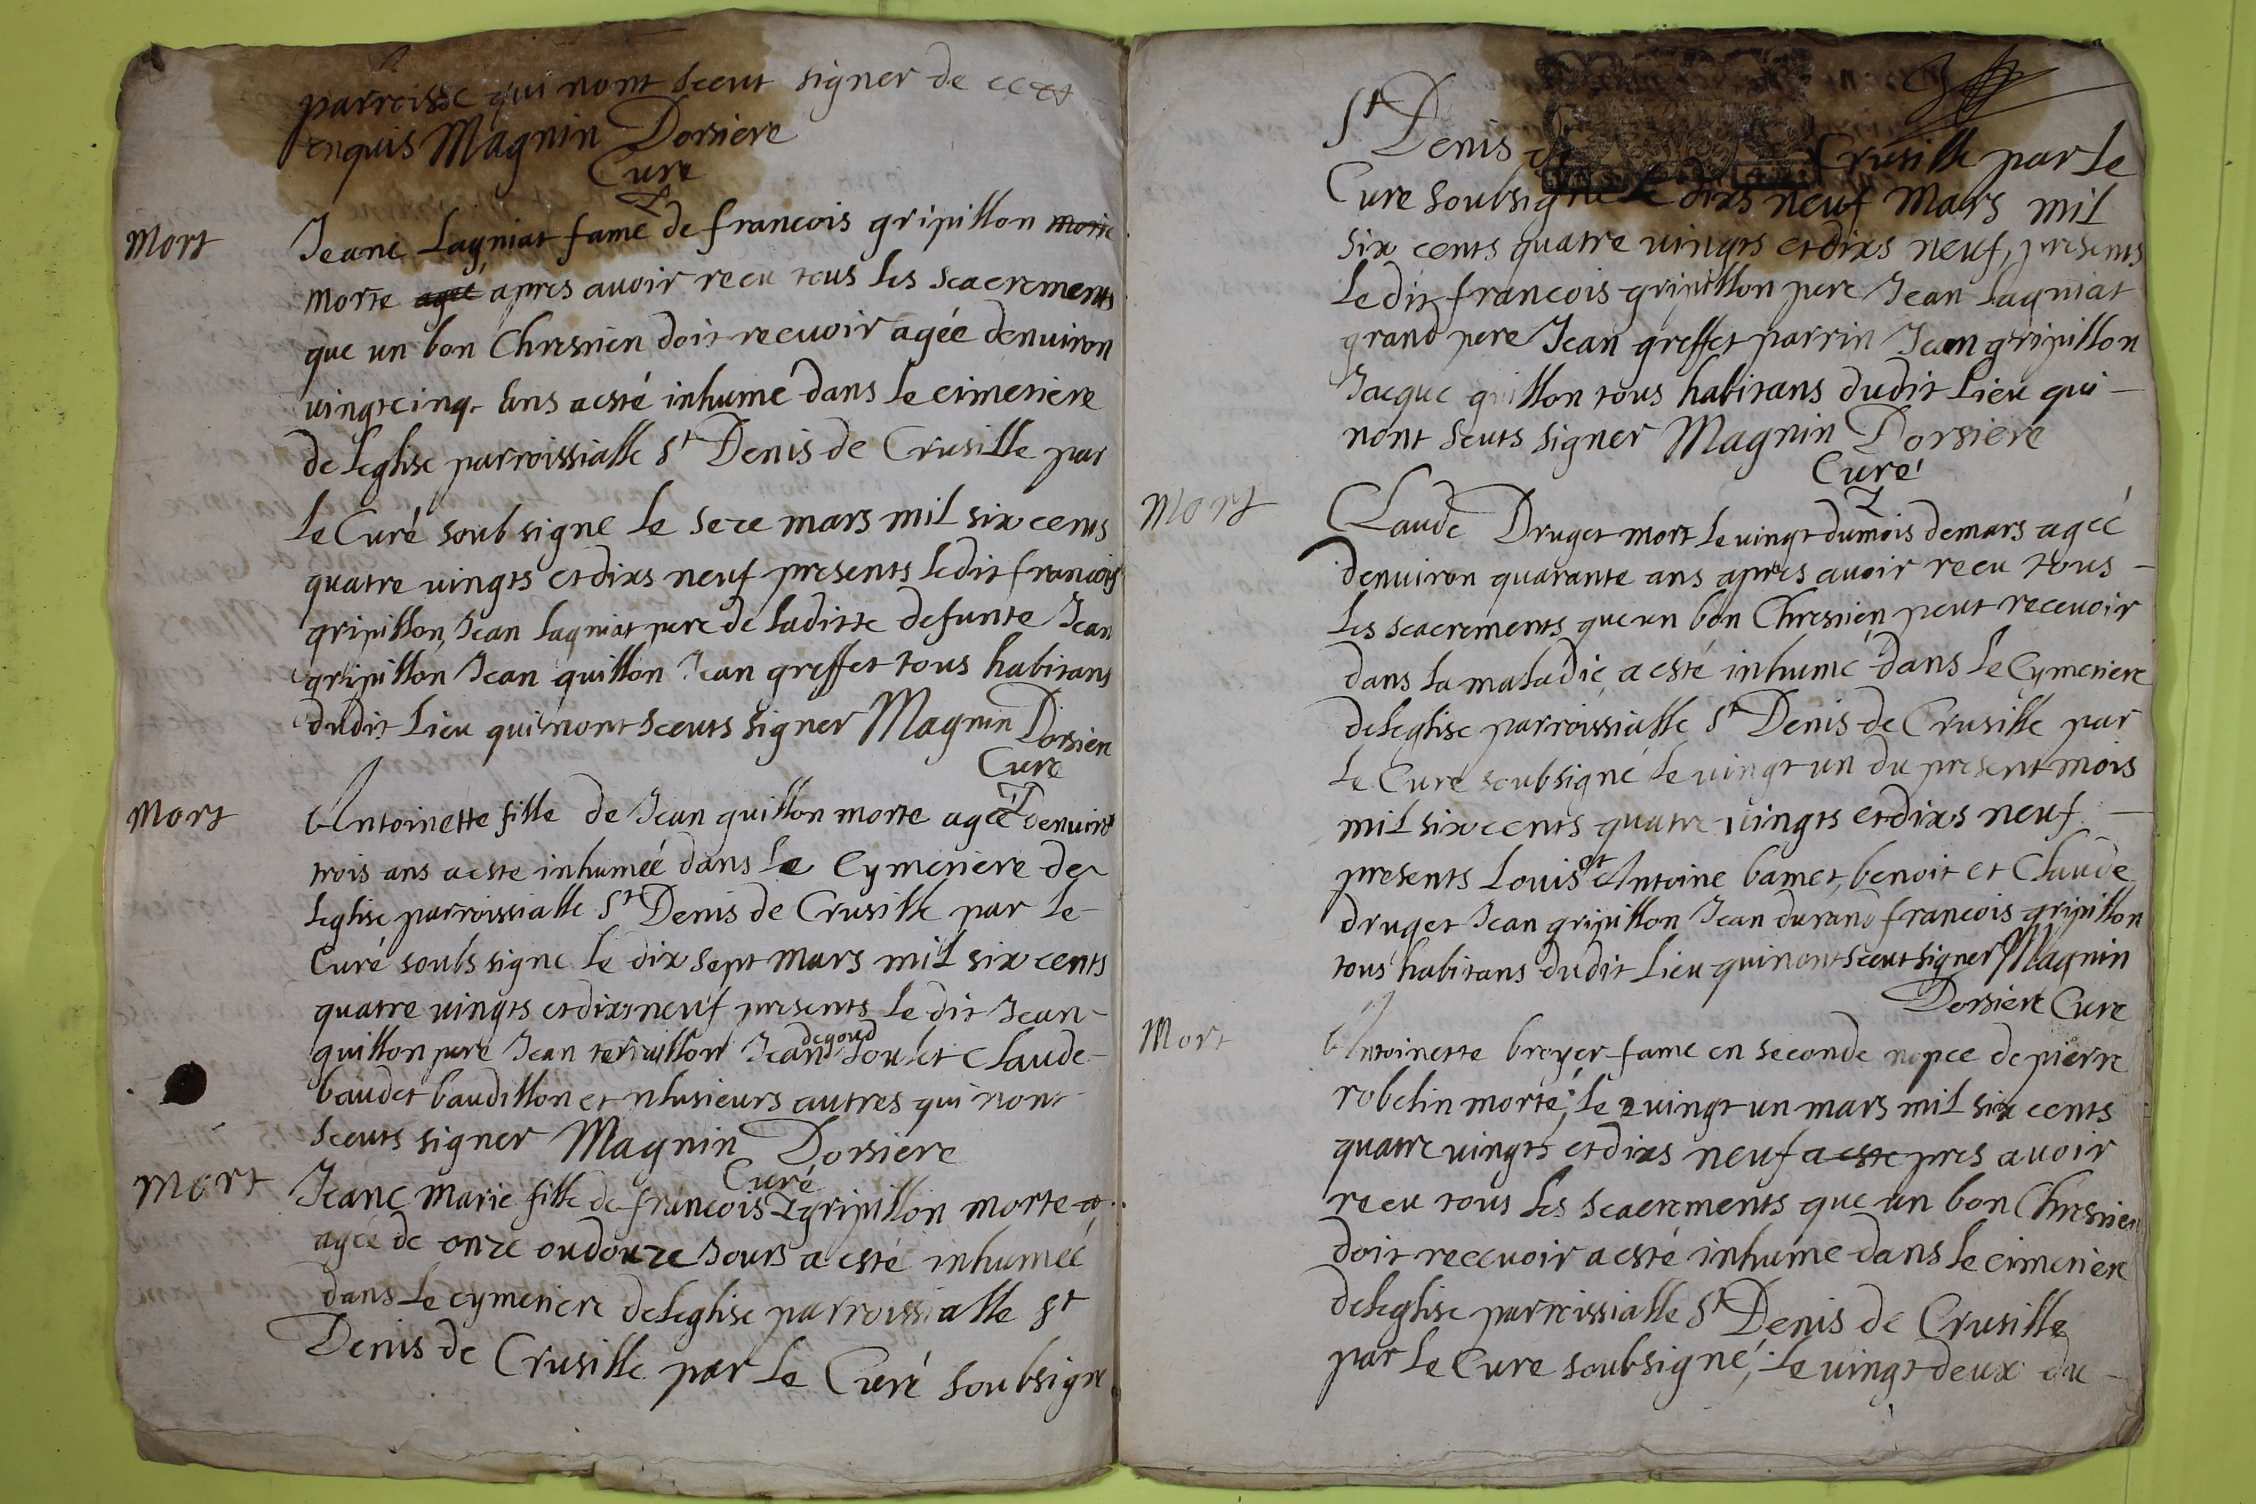 parroisse qui nont sceut signer de ce
enquis Magnin Dorsiere
Cure
Mort
Jeane Lagniat fame de francois gripillon morte
morte agee apres avoir receu tous les seacrements
que un bon Chrestien doit recuvoir agée denuiron
uingtcinq ans a esté inhumé dans le cimetiere
de leglise parroissialle St Denis de Crusille par
le Curé soubsigne le seze mars mil six cents
quatre uingts et dixs neuf presents ledit francois
gripillon, Jean lagniat pere de laditte defunte Jean
gripillon Jean guillon Jean greffet tous habitans
dudit lieu qui nont sceuts signer Magnin Dorsiere
Cure
Mort
Antoinette fille de Jean guillon morte agée denuiro
trois ans a este inhumée dans le Cymetiere de
leglise parroissialle St Denis de Crusille par le
Curé soubs signe le dix sept mars mil six cents
quatre uingts et dixs neuf presents le dit Jean
degoud
guillon pere Jean terraillon Jean et Claude
baudet baudillon et plusieurs autres qui nont
sceuts signer Magnin Dorsiere
Curé
Mort
Jeane Marie fille de francois gripillon morte a
agée de onze ou douze Jours a esté inhumée
dans le cymetiere de leglise parroissialle St
Denis de Crusille par le Curé soubsigne
St Denis de Crusille par le
Cure soubsigne le dixs neuf Mars mil
six cents quatre uingts et dixs neuf, presents
ledit francois gripillon pere Jean lagniat
grand pere Jean greffet parrin Jean gripillon
Jacque guillon tous habitans dudit lieu qui
nont sceuts signer Magnin Dorsiere
Curé
Mort
Claude Druget mort le uingt du mois de mars agée
denuiron quarante ans apres auoir receu tous
les seacrements que un bon Chrestien peut receuoir
dans la maladie a esté inhumé dans le Cymetiere
de leglise parroissialle St Denis de Crusille par
le Curé soubsigné le uingt un du present mois
mil six cents quatre uingts et dixs neuf
presents Louis et Antoine bamet, benoit et Claude
druget Jean gripillon Jean durand francois gripillon
tous habitans dudit lieu qui nont sceut signer Magnin
Dorsiere Cure
Mort
Antoinette broyer fame en seconde nopce de pierre
robelin morte, le 2 uingt un mars mil six cents
quatre uingts et dixs neuf a este pres auoir
receu tous les seacrements que un bon Chrestien
doit receuoir a esté inhumé dans le cimetiere
de leglise parroissialle St Denis de Crusille
par le Cure soubsigné, le uingt deux du